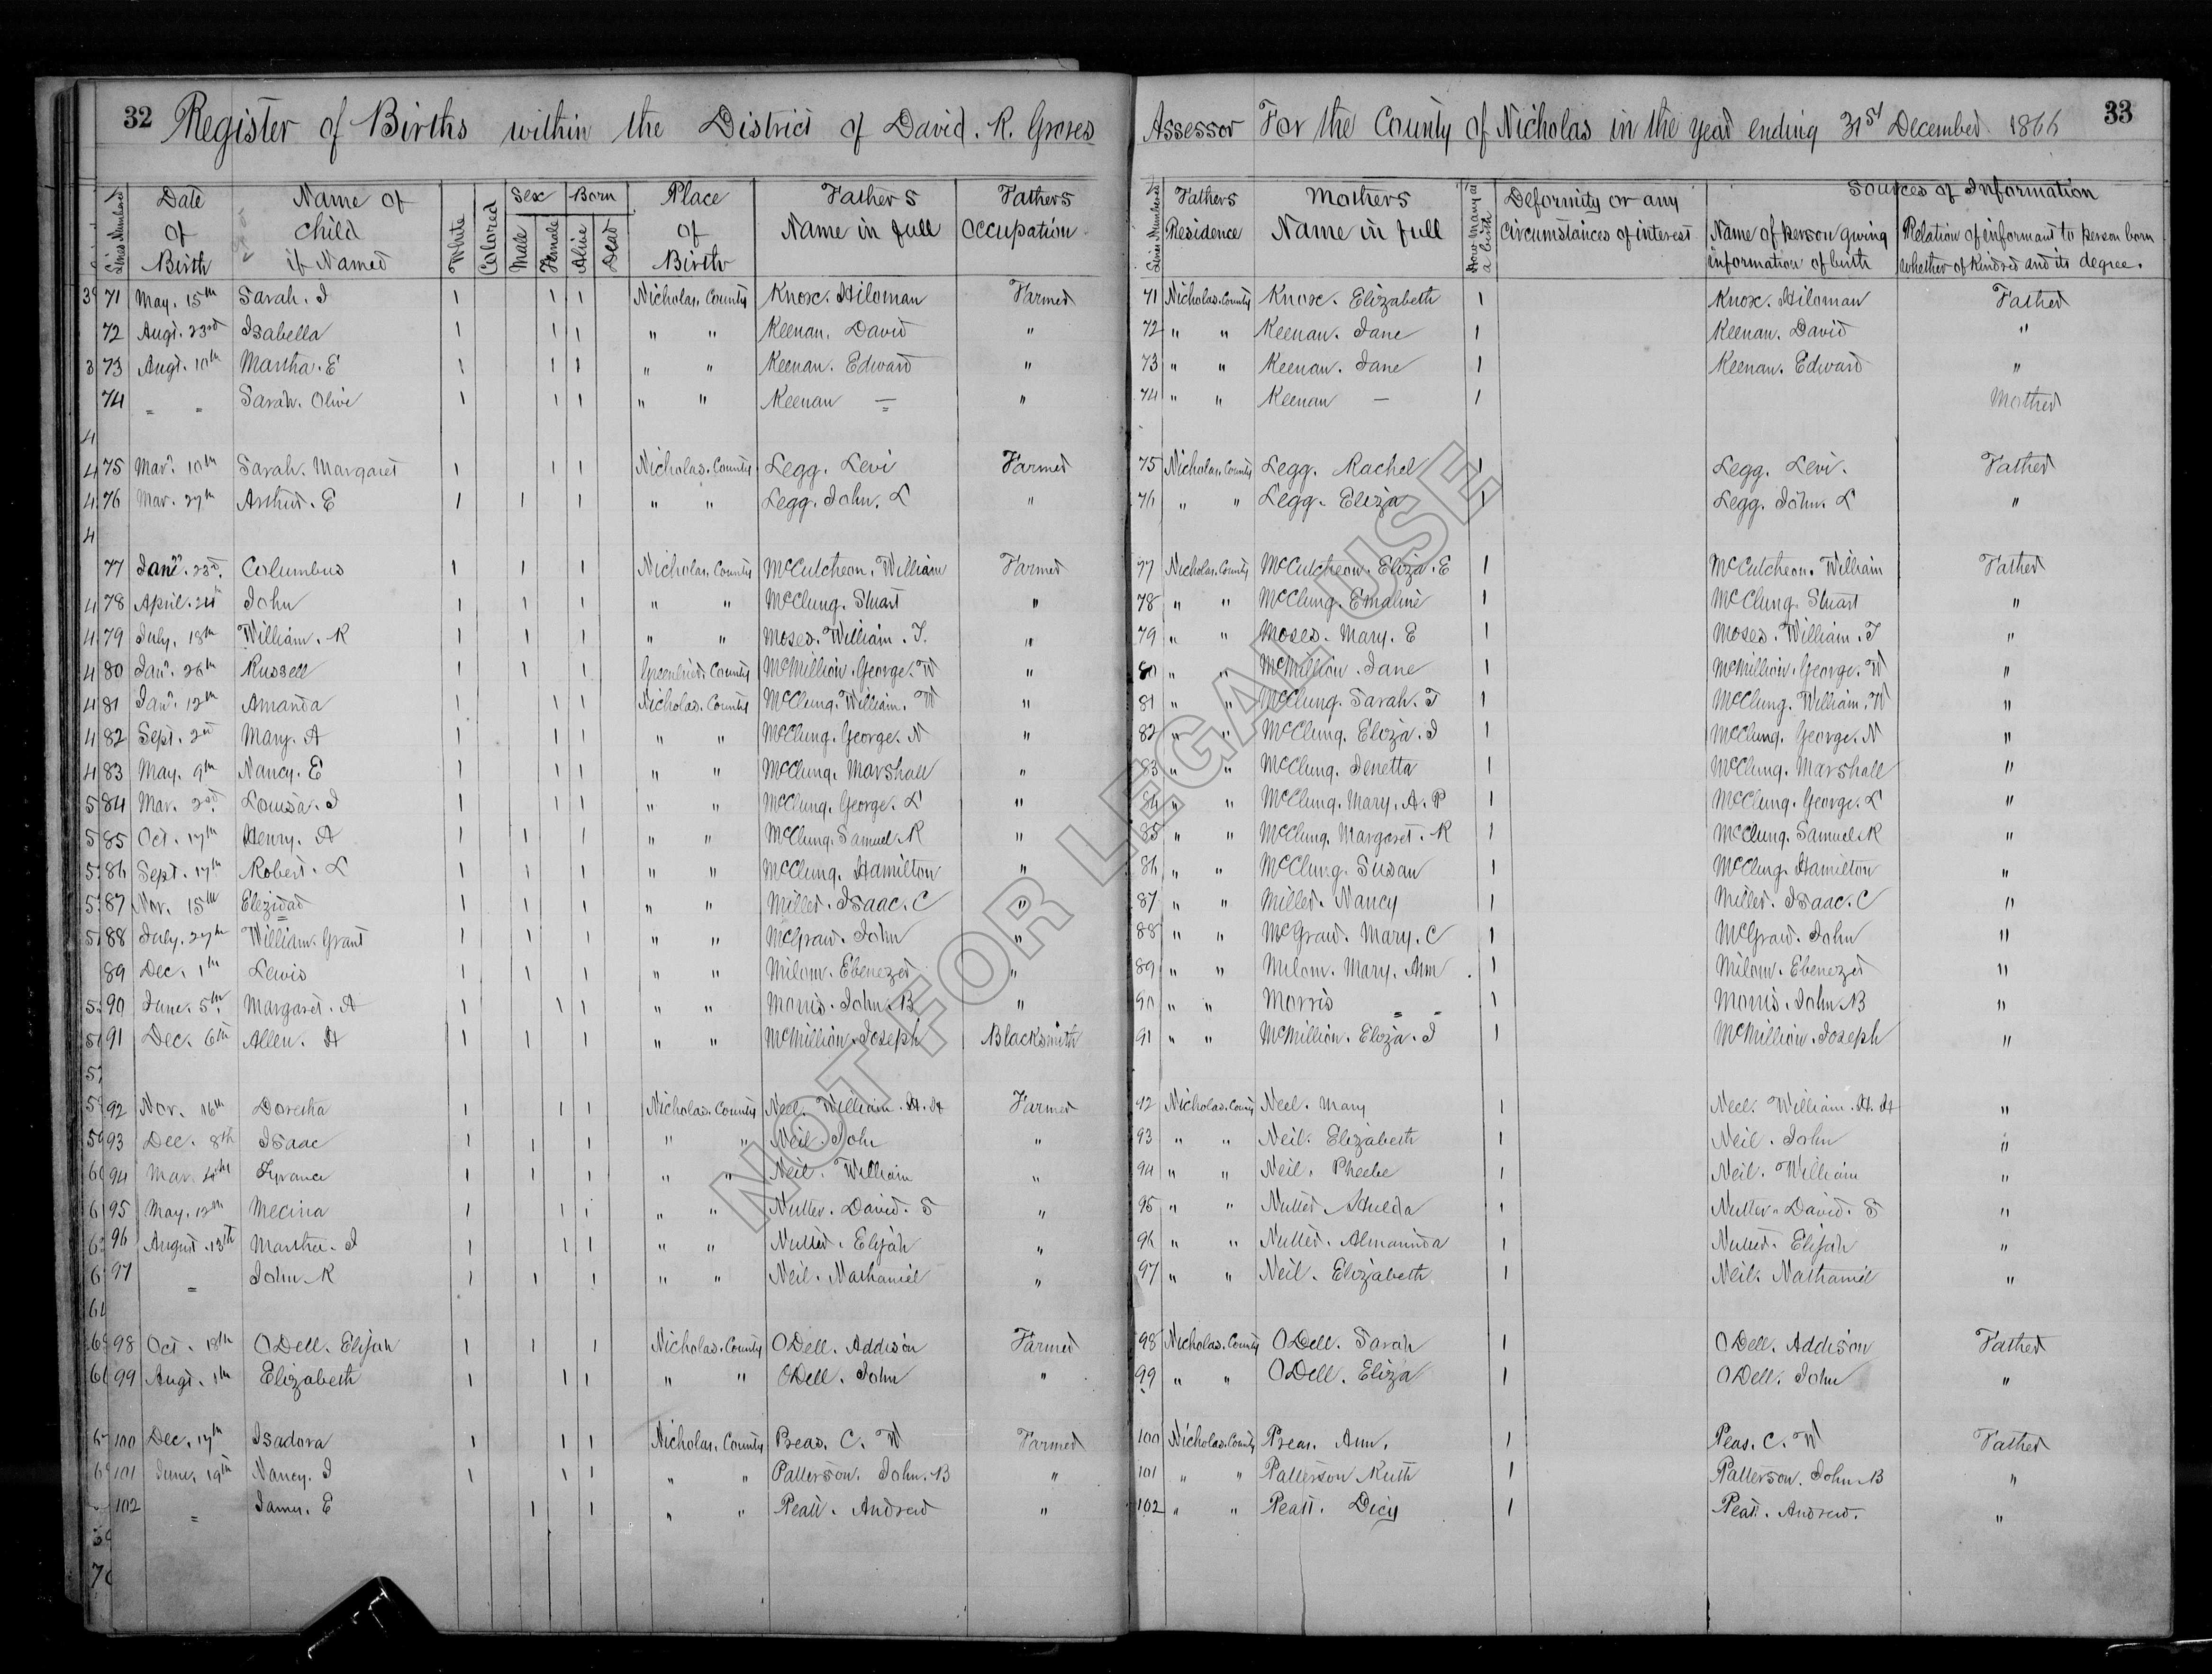 32 Register of Births within the District of David. R. Groves Assessor For the County of Nicholas in the year ending 31st December 1866 33
Lines Numbered
Date of Birth
Name of child if Named
White
Colored
Sex
Male
Female
Born
Alive
Dead
Place of Birth
Fathers Name in full
Fathers Occupation
Lines Numbered
Fathers Residence
Mothers Name in full
How many at a birth
Deformity or any circumstances of interest
Sources of Information
Name of person giving information of birth
Relation of informant to person born whether of Kindred and its degree.
71 May. 15th Sarah. J 1 1 1 Nicholas. County Knox. Hiloman Farmer 71 Nicholas. County Knox. Elizabeth 1 Knox. Hiloman Father
72 Augt. 23rd Isabella 1 1 1 " " Keenan. David " 72 " " Keenan. Jane 1 Keenan. David "
73 Augt. 10th Martha. E 1 1 1 " " Keenan. Edward " 73 " " Keenan. Jane 1 Keenan. Edward "
74 = = Sarah. Olive 1 1 1 " " Keenan — " 74 " " Keenan — 1 Mother
75 Mar. 10th Sarah. Margaret 1 1 1 Nicholas. County Legg. Levi Farmer 75 Nicholas. County Legg. Rachel 1 Legg. Levi. Father
76 Mar. 27th Arthur. E 1 1 1 " " Legg. John. L " 76 " " Legg. Eliza 1 Legg. John. L "
77 Jany. 23rd. Columbus 1 1 1 Nicholas. County McCutcheon. William Farmer 77 Nicholas. County McCutcheon. Eliza. E 1 McCutcheon. William Father
78 April. 24th John 1 1 1 " " McClung. Stuart " 78 " " McClung. Emaline 1 McClung. Stuart "
79 July. 18th William. R 1 1 1 " " Moses. William. T. " 79 " " Moses. Mary. E 1 Moses. William. T "
80 Jany. 26th Russell 1 1 1 Greenbrier. County McMillion. George. W " 80 " " McMillion. Jane 1 McMillion. George. W "
81 Jany. 12th Amanda 1 1 1 Nicholas. County McClung. William. W " 81 " " McClung. Sarah. T 1 McClung. William. W "
82 Sept. 2nd Mary. A 1 1 1 " " McClung. George. N " 82 " " McClung. Eliza. J 1 McClung. George. N "
83 May. 9th Nancy. E 1 1 1 " " McClung. Marshall " 83 " " McClung. Jenetta 1 McClung. Marshall "
84 Mar. 2nd Louisa. J 1 1 1 " " McClung. George. L " 84 " " McClung. Mary. A. P 1 McClung. George. L "
85 Oct. 17th Henry. A 1 1 1 " " McClung. Samuel. R " 85 " " McClung. Margaret. R 1 McClung. Samuel. R "
86 Sept. 17th Robert. L 1 1 1 " " McClung. Hamilton " 86 " " McClung. Susan 1 McClung. Hamilton "
87 Nov. 15th 1 1 1 " " Miller. Isaac. C " 87 " " Miller. Nancy 1 Miller. Isaac. C "
88 July. 27th William. Grant 1 1 1 " " McGraw. John " 88 " " McGraw. Mary. C 1 McGraw. John "
89 Dec. 1th Lewis 1 1 1 " " Milam. Ebenezer " 89 " " Milam. Mary. Ann 1 Milam. Ebenezer "
90 June. 5th. Margaret. A 1 1 1 " " Morris. John. B " 90 " " Morris = = 1 Morris. John. B "
91 Dec. 6th Allen. A 1 1 1 " " McMillion. Joseph Blacksmith 91 " " McMillion. Eliza. J 1 McMillion. Joseph "
92 Nov. 16th Doretha 1 1 1 Nicholas. County Neel. William. A. H Farmer 92 Nicholas. County Neel. Mary 1 Neel. William. A. H "
93 Dec. 8th Isaac 1 1 1 " " Neil. John " 93 " " Neil. Elizabeth 1 Neil. John "
94 Mar. 4th 1 1 1 " " Neil. William " 94 " " Neil. Phebe 1 Neil. William "
95 May. 12th Mecina 1 1 1 " " Nutter. David. S " 95 " " Nutter Hulda 1 Nutter. David. S "
96 August. 13th Martha. J 1 1 1 " " Nutter. Elijah " 96 " " Nutter. Almarinda 1 Nutter. Elijah "
97 = John. R 1 1 1 " " Neil. Nathaniel " 97 " " Neil. Elizabeth 1 Neil. Nathaniel "
98 Oct. 18th ODell. Elijah 1 1 1 Nicholas. County ODell. Addison Farmer 98 Nicholas. County ODell. Sarah 1 ODell. Addison Father
99 Augt. 1th Elizabeth 1 1 1 " " ODell. John " 99 " " ODell. Eliza 1 ODell. John "
100 Dec. 17th Isadora 1 1 1 Nicholas. County Preas. C. W Farmer 100 Nicholas. County Preas. Ann. 1 Peas. C. W Father
101 June. 19th Nancy. J 1 1 1 " " Patterson. John. B " 101 " " Patterson Ruth 1 Patterson. John. B "
102 = James. E 1 1 " " Peatt. Andrew " 102 " " Peatt. Dicy 1 Peatt. Andrew. "
NOT FOR LEGAL USE